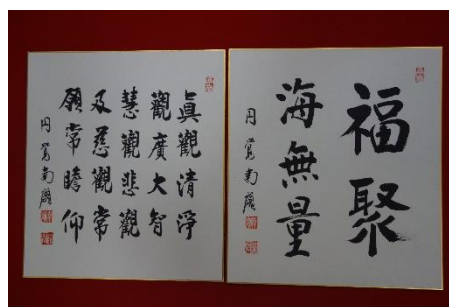 福聚
海無量
円覚南嶺
眞觀清淨
觀廣大智
慧觀悲觀
及慈觀常
願常瞻仰
円覚南嶺